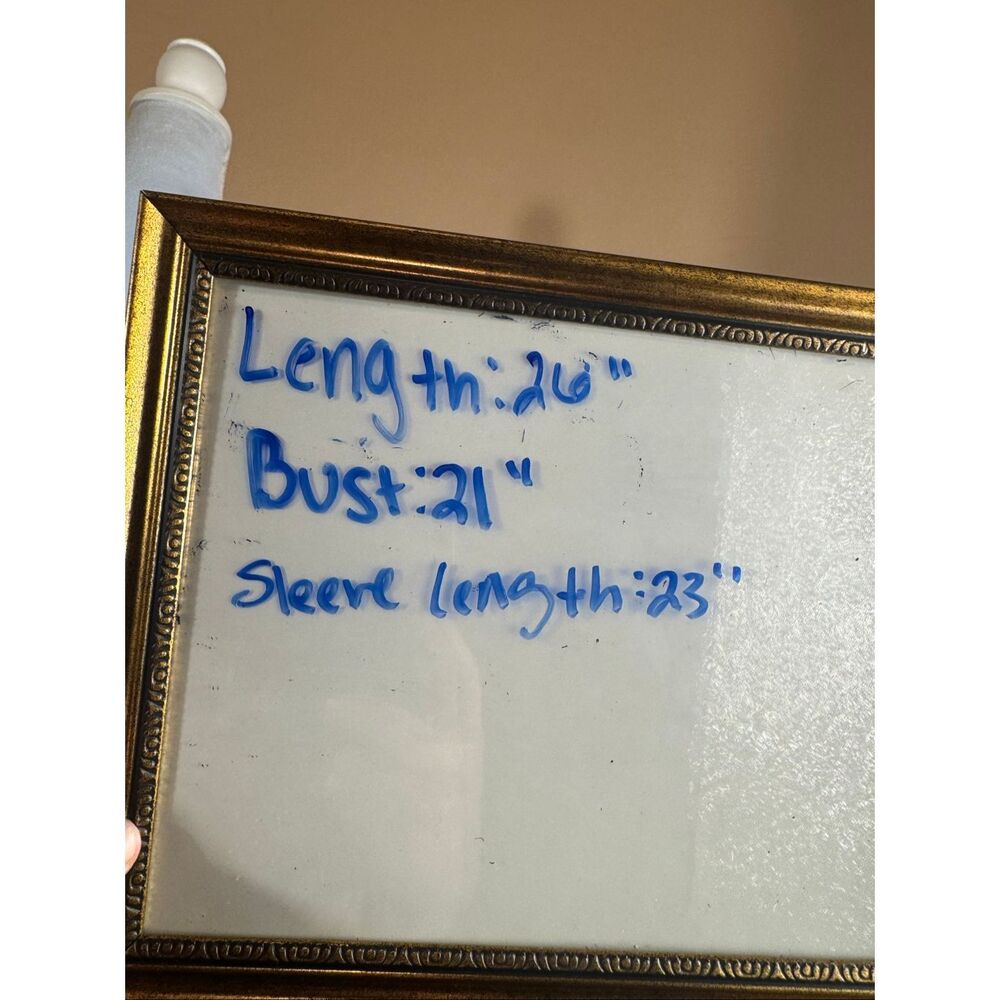 Length: 26"
Bust: 21"
Sleeve length: 23"